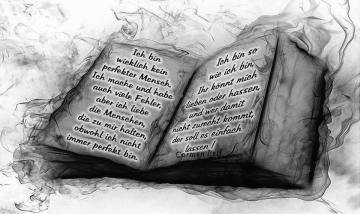 Ich bin
wirklich kein
perfekter Mensch.
Ich mache und habe
auch viele Fehler,
aber ich liebe
die Menschen,
die zu mir halten,
obwohl ich nicht
immer perfekt bin.
Ich bin so
wie ich bin.
Ihr könnt mich
lieben oder hassen,
und wer damit
nicht zurecht kommt,
der soll es einfach
lassen !
Carmen